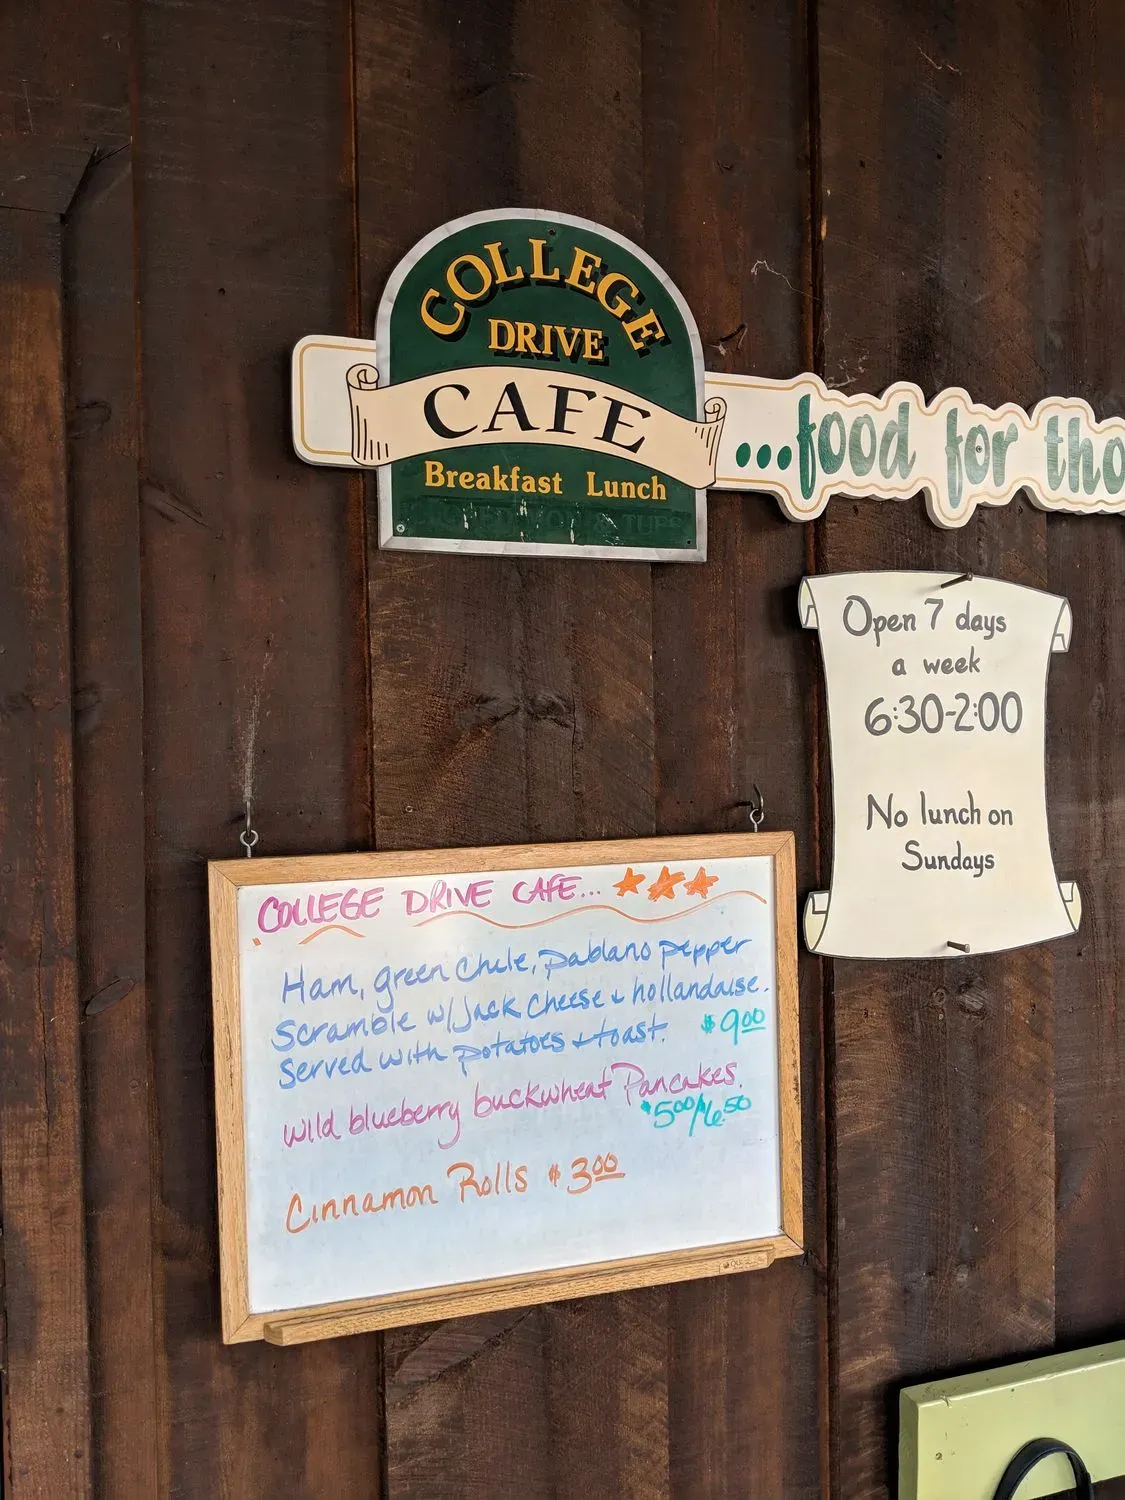 COLLEGE
DRIVE
CAFE
Breakfast Lunch
...food for tho
Open 7 days
a week
6:30-2:00
No lunch on
Sundays
COLLEGE DRIVE CAFE...
Ham, green chile, pablano pepper
scramble w/jack cheese + hollandaise.
Served with potatoes + toast. $9.00
wild blueberry buckwheat Pancakes.
$5.00/6.50
Cinnamon Rolls $3.00